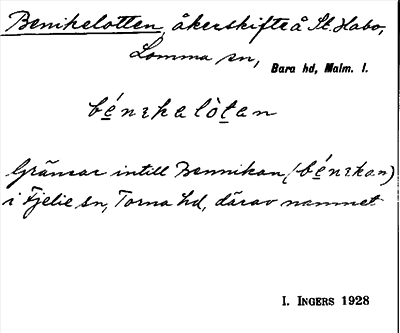 Benikelotten, åkerskifte å St. Habo,
Lomma sn,
Bara hd, Malm. l.
bénıkalòtan
Gränsar intill Bennikan (bénıkan)
i Fjelie sn, Torna hd, därav namnet
I. INGERS 1928